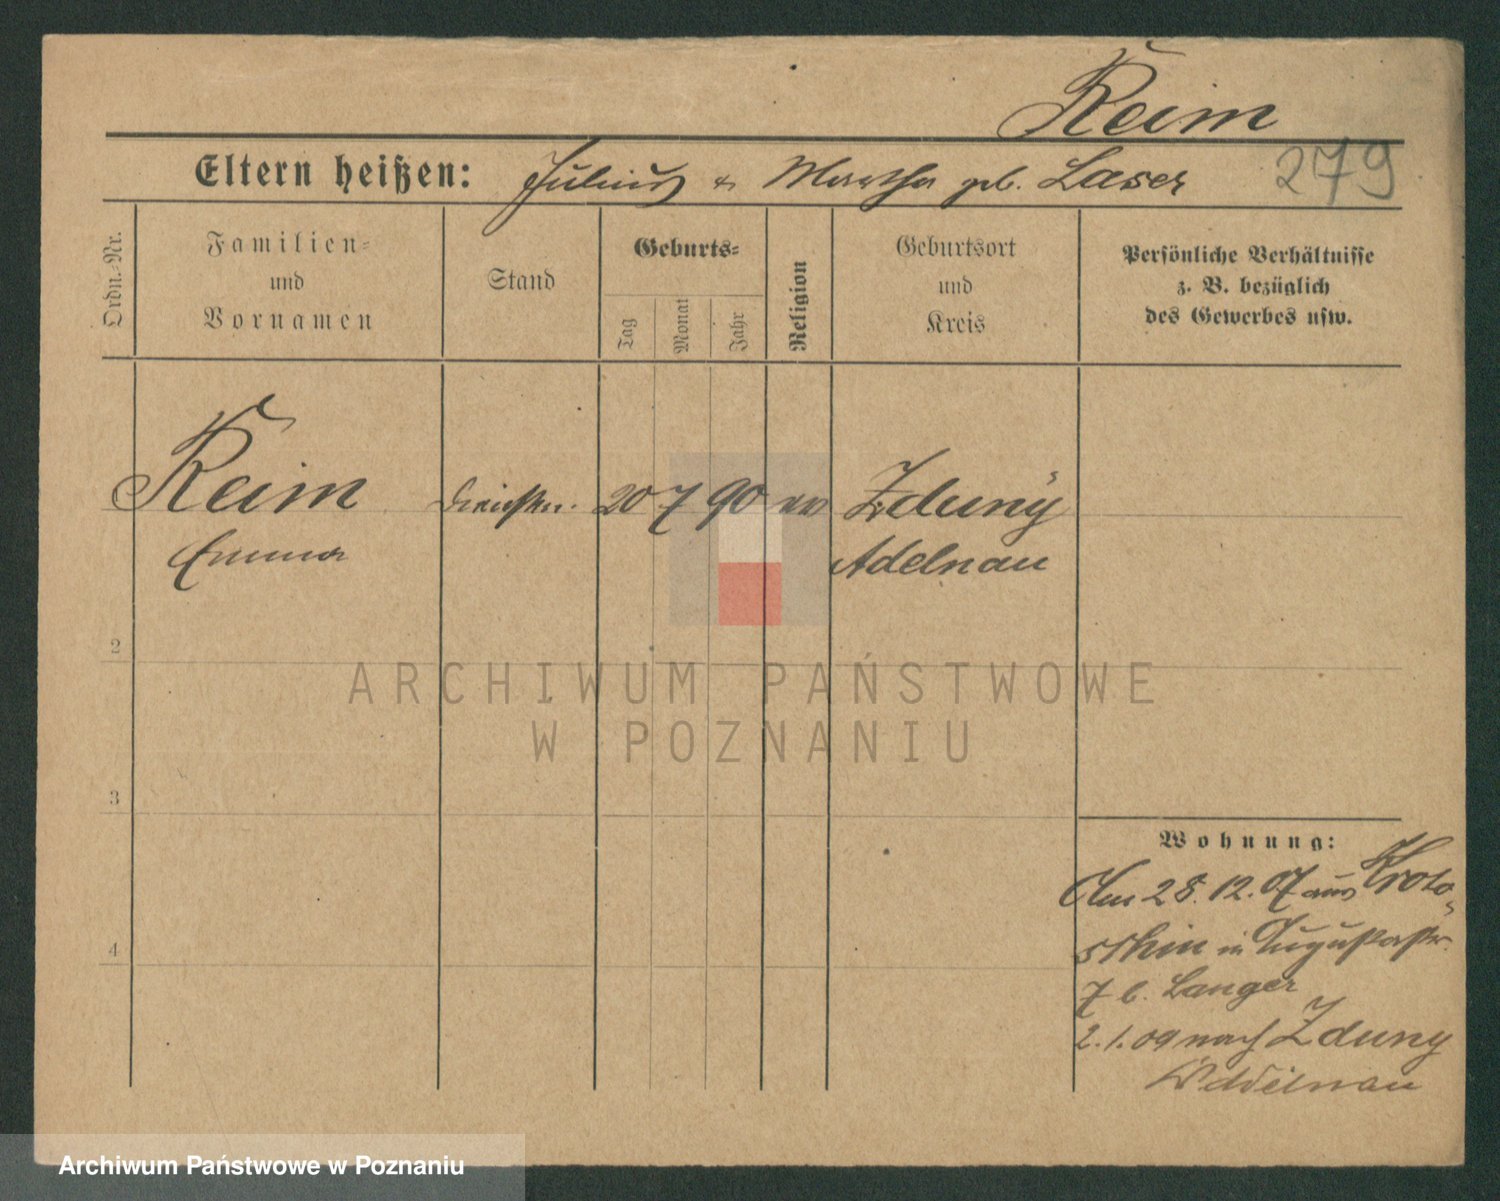 Reim
Eltern heißen: Julius & Martha geb. Laser
279
Ordn.-Nr.
Familien-
und
Vornamen
Stand
Geburts-
Tag
Monat
Jahr
Religion
Geburtsort
und
Kreis
Persönliche Verhältnisse
z. B. bezüglich
des Gewerbes usw.
Reim 20 7 90 ev Zduny
Emma Adelnau
2
ARCHIWUM PAŃSTWOWE
W POZNANIU
3
4
Wohnung:
Am 28.12.07 aus Kroto-
schin in Augustastr.
7 b. Langer
2.1.09 nach Zduny
Adelnau
Archiwum Państwowe w Poznaniu